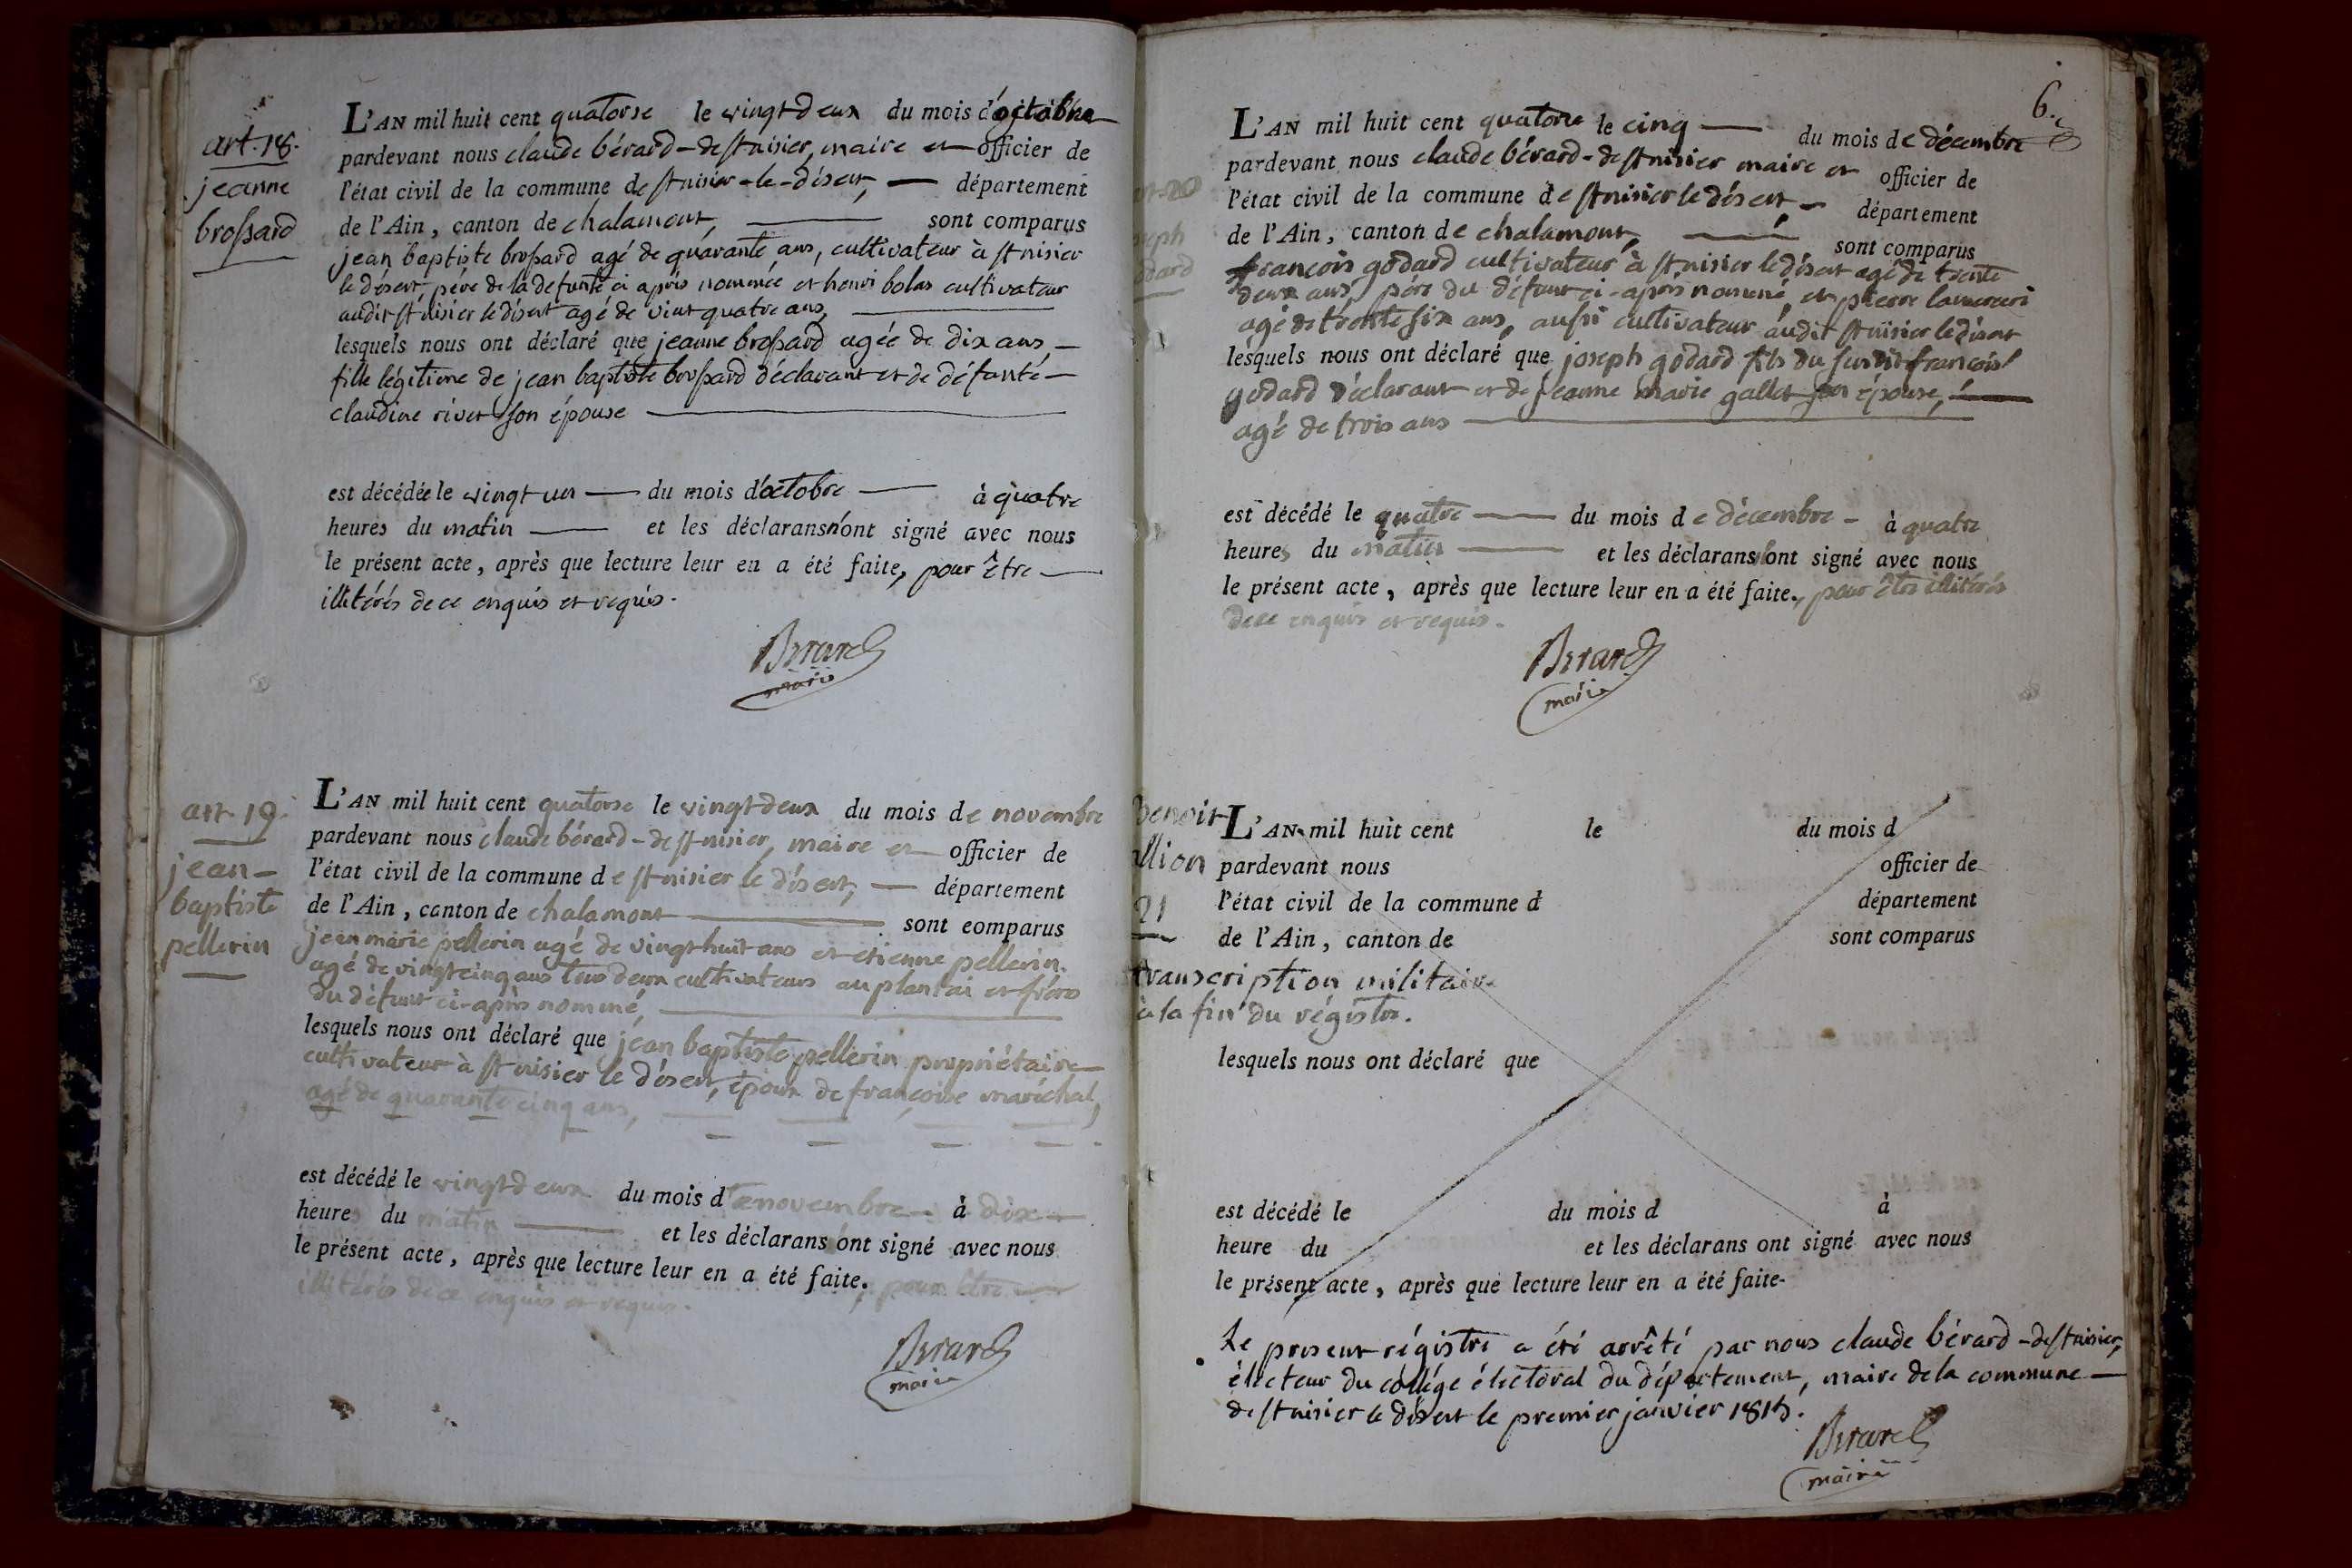 art. 18.
jeanne
brossard
L'AN mil huit cent quatorse le vingt deux du mois d'octobre
pardevant nous claude bérard-de st nisier, maire et officier de
l'état civil de la commune de st nisier-le-désert, département
de l'Ain, canton de chalamont, sont comparus
jean baptiste brossard agé de quarante ans, cultivateur à st nisier
le désert père de la defunte ci après nommée et henri bolas cultivateur
audit st nisier le désert agé de vint quatre ans,
lesquels nous ont déclaré que jeanne brossard agée de dix ans
fille légitime de jean baptiste brossard déclarant et de défunte
claudine rivet son épouse
est décédée le vingt un du mois d'octobre à quatre
heures du matin et les déclarans n'ont signé avec nous
le présent acte, après que lecture leur en a été faite, pour être
illitérés de ce enquis et requis.
Berard
maire
art. 19.
jean-
baptiste
pellerin
L'AN mil huit cent quatorse le vingt deux du mois de novembre
pardevant nous claude bérard-de st nisier, maire et officier de
l'état civil de la commune de st nisier le désert, département
de l'Ain, canton de chalamont sont comparus
jean marie pellerin agé de vingt huit ans et etienne pellerin
agé de vingt cinq ans tous deux cultivateurs au plantai et frères
du défunt ci-après nommé,
lesquels nous ont déclaré que jean baptiste pellerin propriétaire
cultivateur à st nisier le désert, époux de françoise maréchal,
agé de quarante cinq ans,
est décédé le vingt deux du mois de novembre à dix
heures du matin et les déclarans n'ont signé avec nous
le présent acte, après que lecture leur en a été faite, pour être
illitérés de ce enquis et requis.
Berard
maire
6.
L'AN mil huit cent quatorse le cinq du mois de décembre
pardevant nous claude bérard-de st nisier maire et officier de
l'état civil de la commune de st nisier le désert département
de l'Ain, canton de chalamont, sont comparus
francois godard cultivateur à st nisier le désert agé de trente
deux ans, père du défunt ci-après nommé, et pierre
agé de trente six ans, aussi cultivateur audit st nisier le désert
lesquels nous ont déclaré que joseph godard fils du susdit francois
godard déclarant et de jeanne marie gallet son épouse,
agé de trois ans
est décédé le quatre du mois de décembre à quatre
heures du matin et les déclarans n'ont signé avec nous
le présent acte, après que lecture leur en a été faite, pour être illitérés
de ce enquis et requis.
Berard
maire
benoit
llion
21
L'AN mil huit cent le du mois d
pardevant nous officier de
l'état civil de la commune d département
de l'Ain, canton de sont comparus
transcription militaire
à la fin du régistre.
lesquels nous ont déclaré que
est décédé le du mois d à
heure du et les déclarans ont signé avec nous
le présent acte, après que lecture leur en a été faite.
Le present régistre a été arrêté par nous claude bérard-de st nisier,
électeur du collége électoral du département, maire de la commune
de st nisier le désert le premier janvier 1815.
Berard
maire